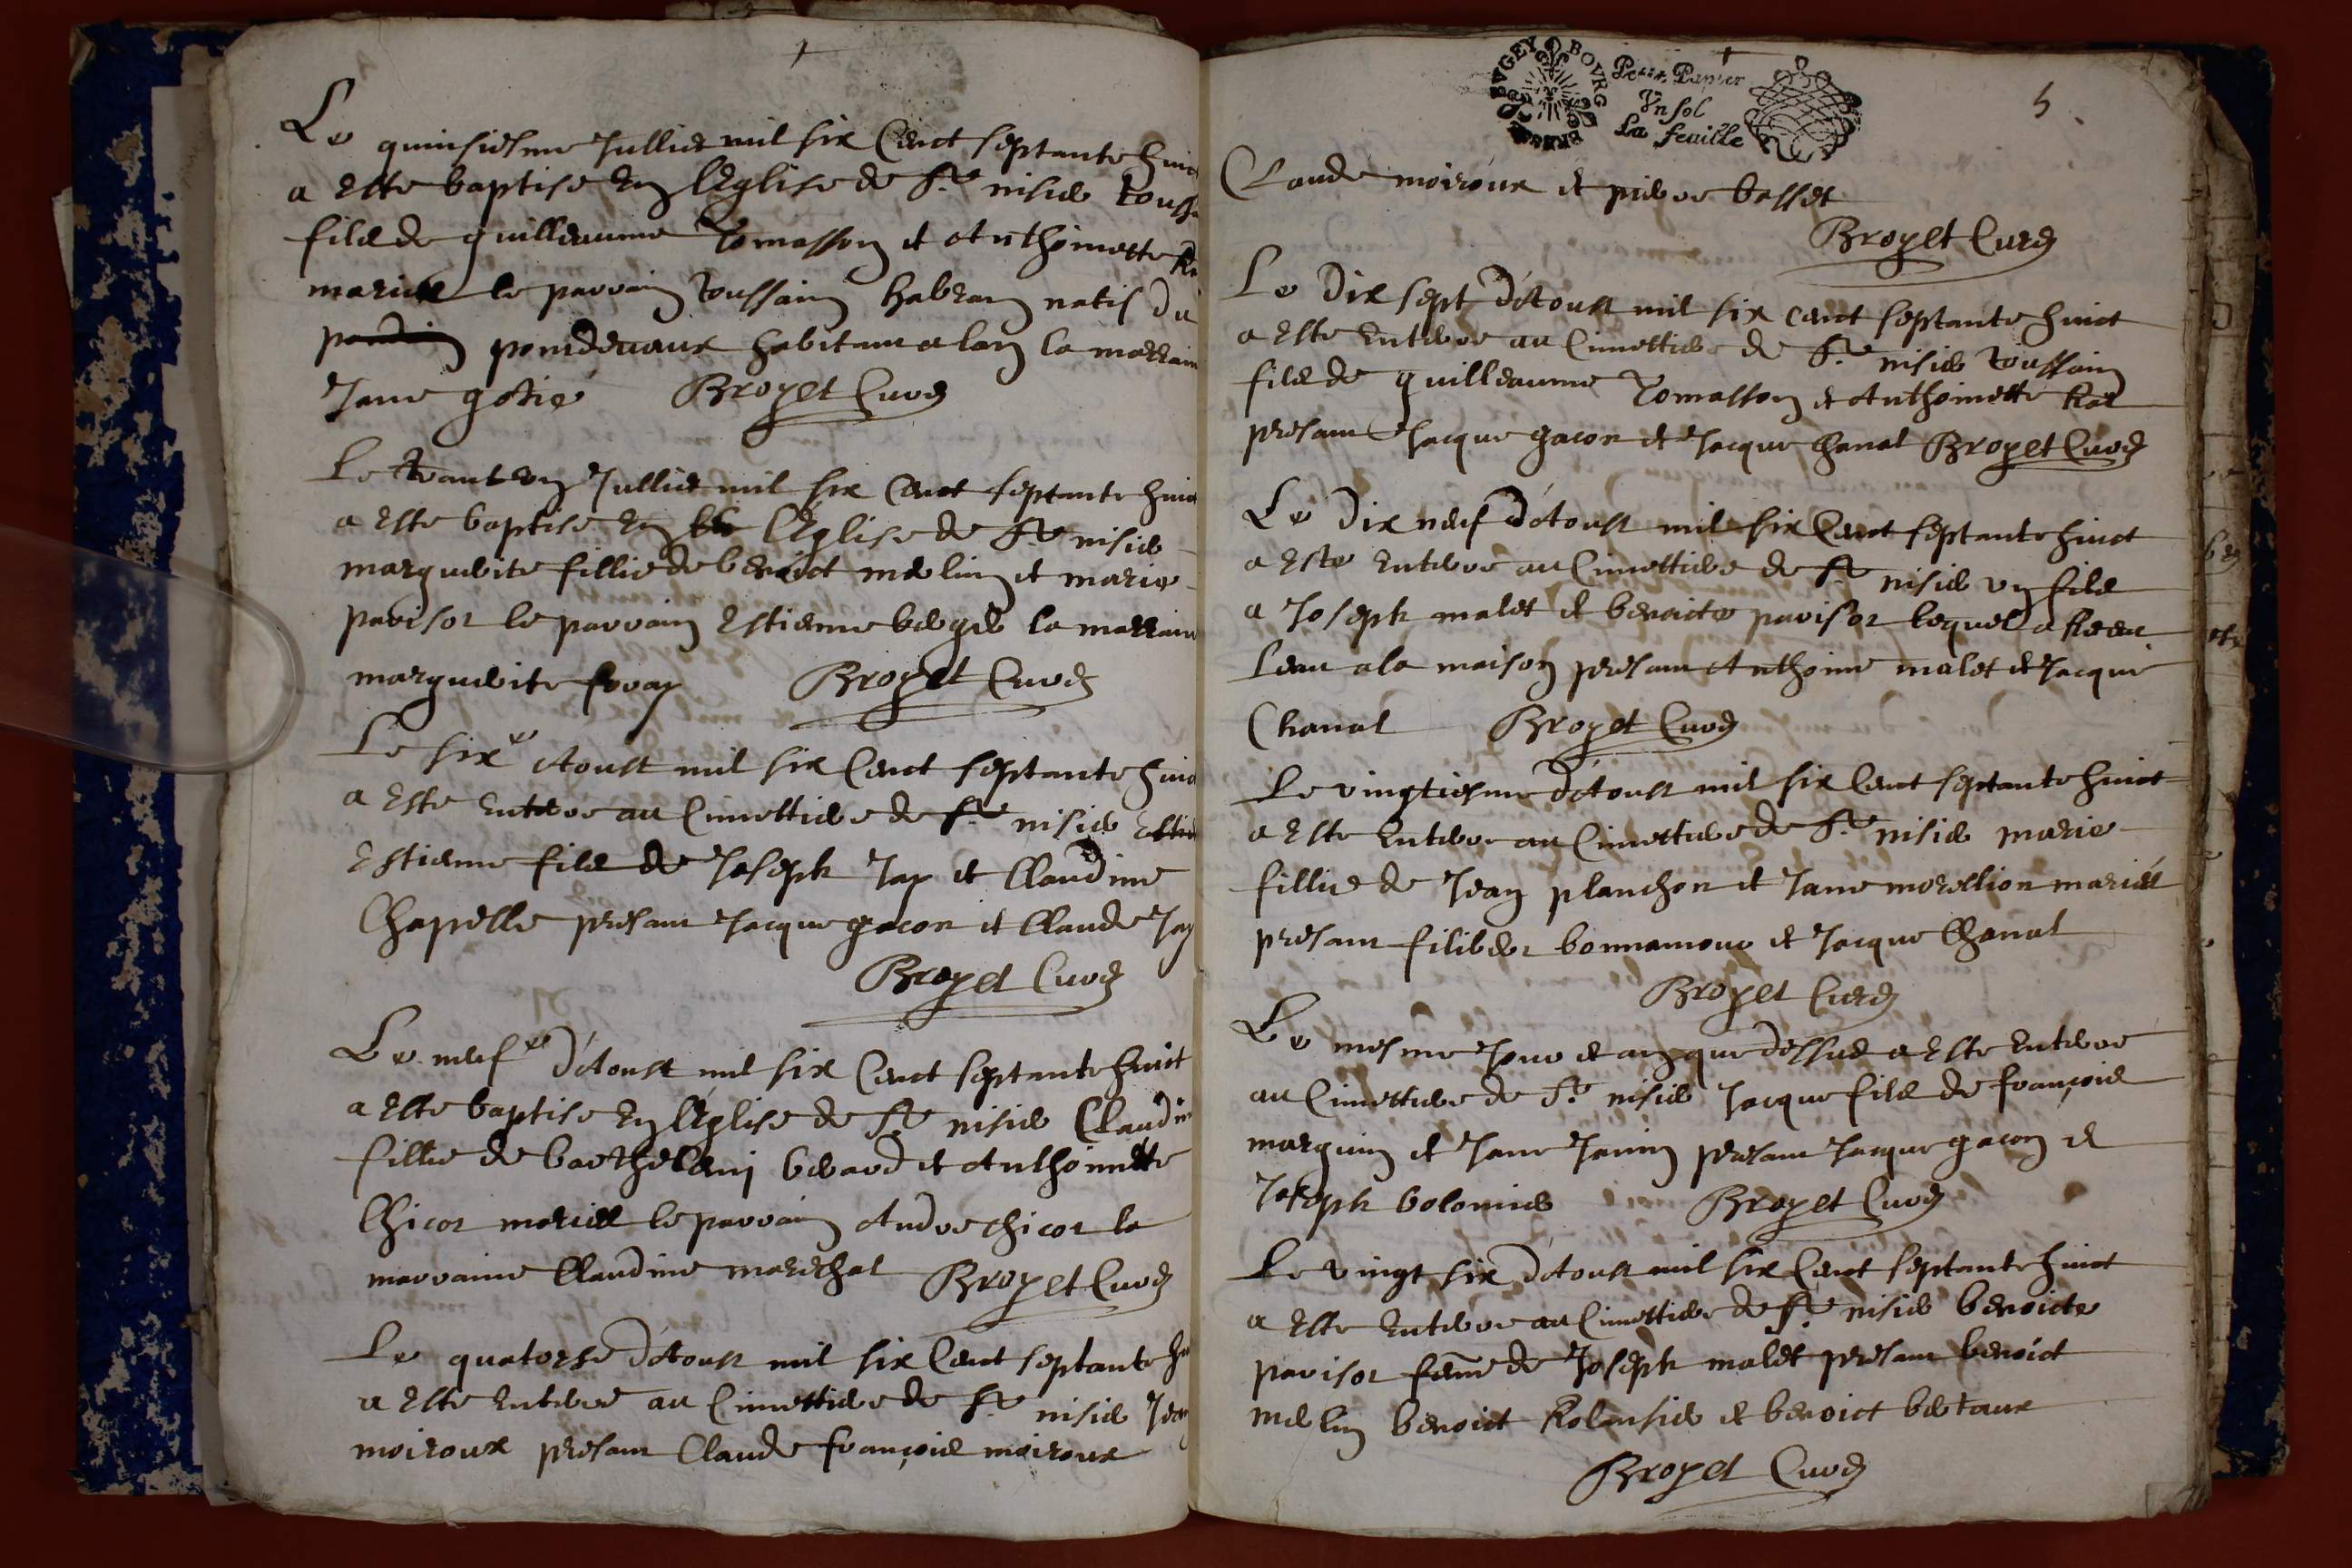 Le quinsiesme Julliet mil six Cent septante huic
a Este baptise En lEglise de St nisier touss
fils de guilleaume Tomasson et Anthoinette
mariés le parrain toussain habran natif du
pondevaux habitant a la marrain
Jane gotié Broyet Curé
Le trante un Julliet mil six Cent septante huic
a Este baptise En lEglise de St nisier
marguerite fillie de benoict merlin et marie
parisot le parrain Estienne berger la marrain
marguerite foray Broyet Curé
Le sixe Aoust mil six Cent septante huic
a Este Enterre au Cimettiere de St nisier
Estienne fils de Joseph Jay et Claudine
Chapelle presant Jacque gacon et Claude Jay
Broyet Curé
Le neufe d'Aoust mil six Cent septante huict
a Este baptise En lEglise de St nisier Claudin
fillie de barthelemi berard et Anthoinette
Chicot mariés le parrain Andre chicot la
marraine Claudine marechal Broyet Curé
Le quatorse d'Aoust mil six Cent septante hu
a Este Enterre au Cimettiere de St nisier Jean
moiroux presant Claude françois moiroux
BVGEY BOVRG
Petit Papier
Vn sol
La feuille
5
Claude moiroux et pierre basset
Broyet Curé
Le Dix sept d'Aoust mil six cent septante huict
a Este Enterre au Cimettiere de St nisier toussain
fils de guilleaume Tomasson et Anthoinette Rat
presant Jacque gacon et Jacque Chanal Broyet Curé
Le Dix neuf d'Aoust mil six Cent septante huict
a Este Enterre au Cimettiere de St nisier un fils
a Joseph malet et benoicte parisot lequel a Receu
leau a la maison presant Anthoine malet et Jacque
Chanal Broyet Curé
Le vingtiesme d'Aoust mil six Cent septante huict
a Este Enterre au Cimettiere de St nisier marie
fillie de Jean planchon et Jane morellion mariés
presant filibert bonnamour et Jacque Chanal
Broyet Curé
Le mesme Jour et an que dessus a Este Enterre
au Cimettiere de St nisier Jacque fils de françois
marguin et Jane Janin presant Jacque gacon et
Joseph bolomier Broyet Curé
Le vingt six d'Aoust mil six Cent septante huict
a Este Enterre au Cimettiere de St nisier benoicte
parisot feme de Joseph malet presant benoict
merlin benoict Rolansier et benoict betaux
Broyet Curé